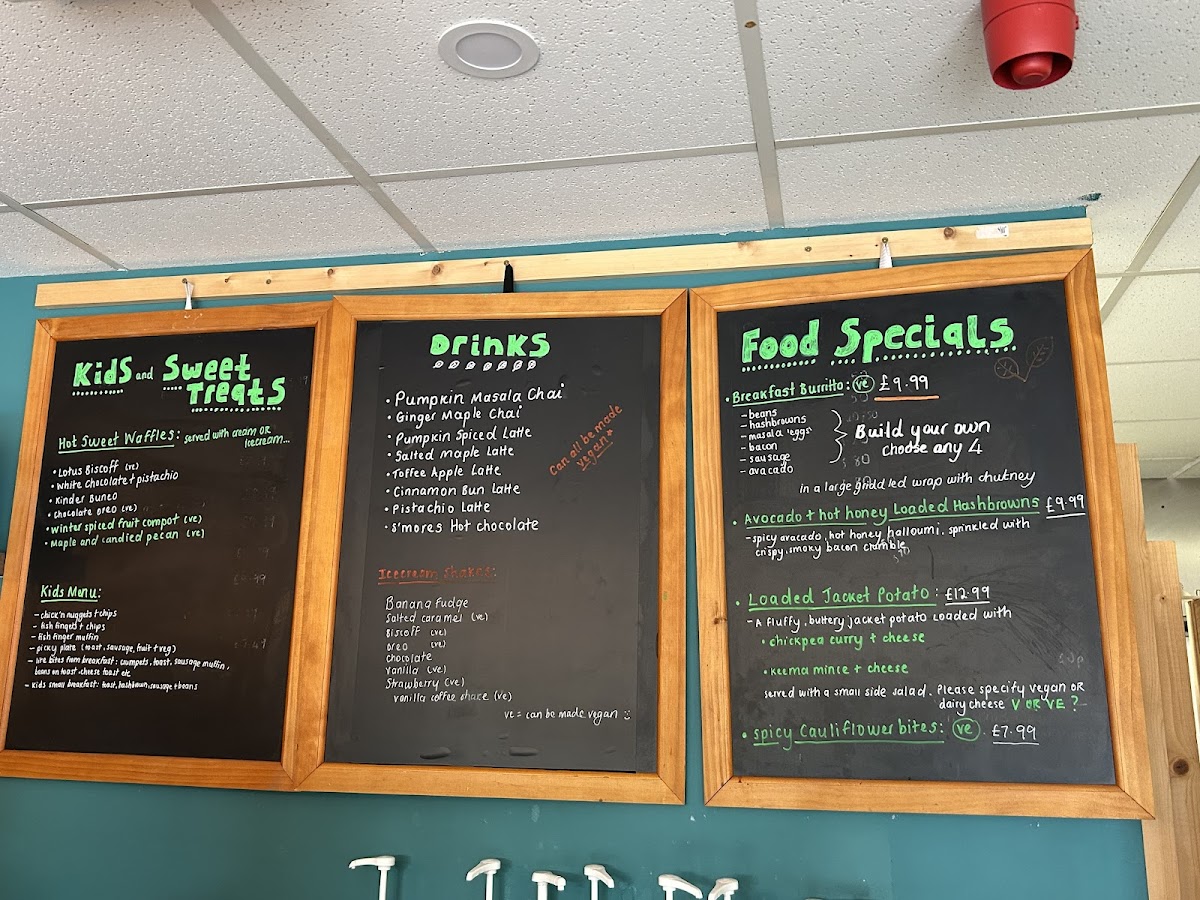 Kids and Sweet
Treats
Hot Sweet Waffles: served with cream or
icecream...
• Lotus Biscoff (ve)
• White chocolate + pistachio
• Kinder Bueno
• chocolate oreo (ve)
• Winter spiced fruit compot (ve)
• Maple and candied pecan (ve)
Kids Menu:
- chick'n nuggets + chips
- fish fingers + chips
- fish finger muffin
- picky plate (toast, sausage, fruit + veg)
- lite bites from breakfast: crumpets, toast, sausage muffin,
beans on toast, cheese toast etc
- Kids small breakfast: toast, hashbrown, sausage + beans
Drinks
• Pumpkin Masala Chai
• Ginger Maple Chai
• Pumpkin Spiced Latte
• Salted Maple Latte
• Toffee Apple Latte
• Cinnamon Bun Latte
• Pistachio Latte
• S'mores Hot chocolate
Can all be made
vegan*
Icecream Shakes:
Banana Fudge
Salted caramel (ve)
Biscoff (ve)
oreo (ve)
chocolate
vanilla (ve)
Strawberry (ve)
vanilla coffee shake (ve)
ve = can be made vegan
Food Specials
• Breakfast Burrito: ve £9.99
- beans
- hashbrowns
- masala 'eggs'
- bacon
- sausage
- avacado
Build your own
choose any 4
in a large griddled wrap with chutney
• Avocado + hot honey Loaded Hashbrowns £9.99
- spicy avacado, hot honey, halloumi, sprinkled with
crispy, smoky bacon crumble
• Loaded Jacket Potato: £12.99
- A fluffy, buttery jacket potato loaded with
• chickpea curry + cheese
• keema mince + cheese
served with a small side salad. Please specify vegan or
dairy cheese V OR VE?
• spicy Cauliflower bites: ve £7.99